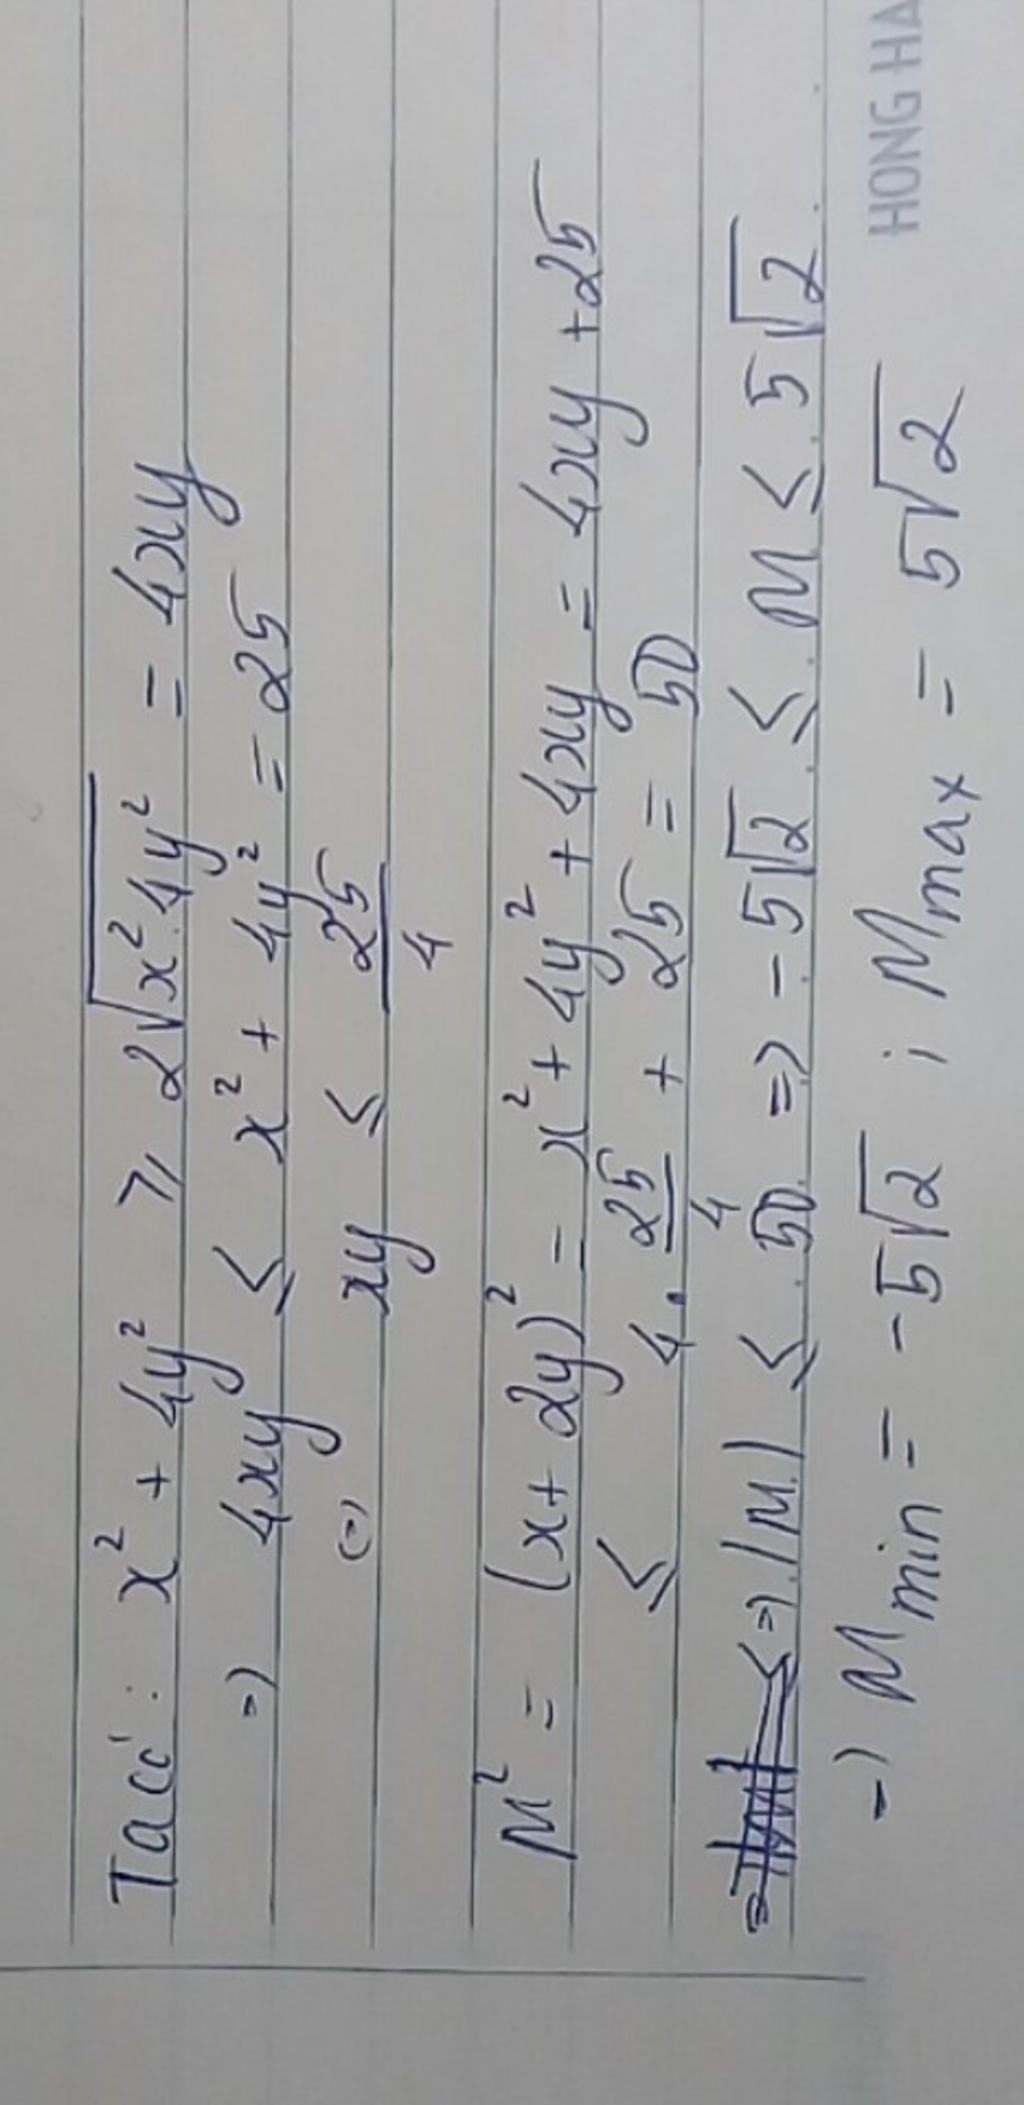 Ta có: x² + 4y² ≥ 2√(x².4y²) = 4xy
=) 4xy ≤ x² + 4y² = 25
(=) xy ≤ 25/4
M² = (x + 2y)² = x² + 4y² + 4xy = 4xy + 25
≤ 4. 25/4 + 25 = 50
=) |M| ≤ 50 =) -5√2 ≤ M ≤ 5√2
=) Mmin = -5√2 ; Mmax = 5√2
HONG HA